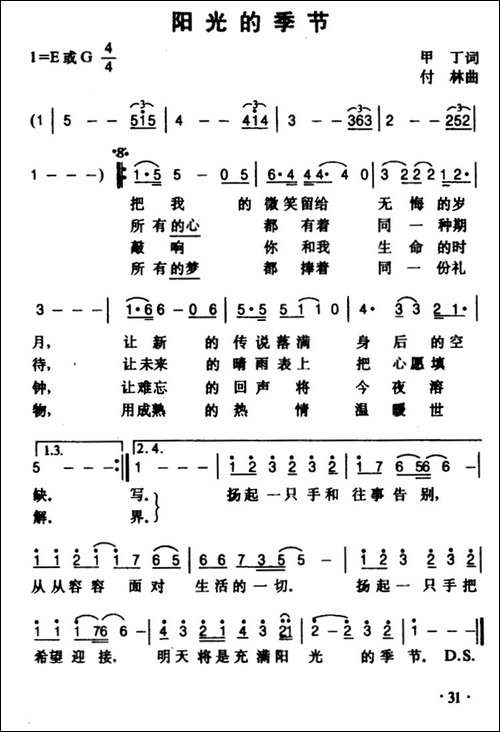 阳光的季节
1=E或G 4/4
甲 丁词
付 林曲
(1 | 5 - - 515 | 4 - - 414 | 3 - - 363 | 2 - - 252 |
1 - - -) 1·5 5 - 0 5 | 6·4 44·4 0 | 3 2 2 2 1 2· |
把 我 的 微笑留给 无 悔 的岁
所有的心 都 有着 同 一 种期
敲 响 你 和我 生 命 的时
所有的梦 都 捧着 同 一 份礼
3 - - - | 1·6 6 - 0 6 | 5·5 5 1 0 | 4· 3 3 2 1· |
月, 让 新 的 传说落满 身 后 的空
待, 让未来 的 晴雨表上 把 心愿填
钟, 让难忘 的 回声将 今 夜 溶
物, 用成熟 的 热 情 温 暖 世
1.3. 2.4.
5 - - - :| 1 - - - | 1 2 3 2 3 2 | 1 7 6 56 6 - |
缺。 写。 扬起一只手和 往事告别,
解。 界。
1 1 2 1 1 7 6 5 | 6 6 7 3 5 5 - | 1 2 3 2 3 2 |
从从容容 面对 生活的一切。 扬起一只手把
1 1 1 76 6 - | 4 3 2 1 4 3 21 | 2 - 2 3 2 | 1 - - - ||
希望迎接, 明天将是充满阳 光 的季节。D.S.
· 31 ·